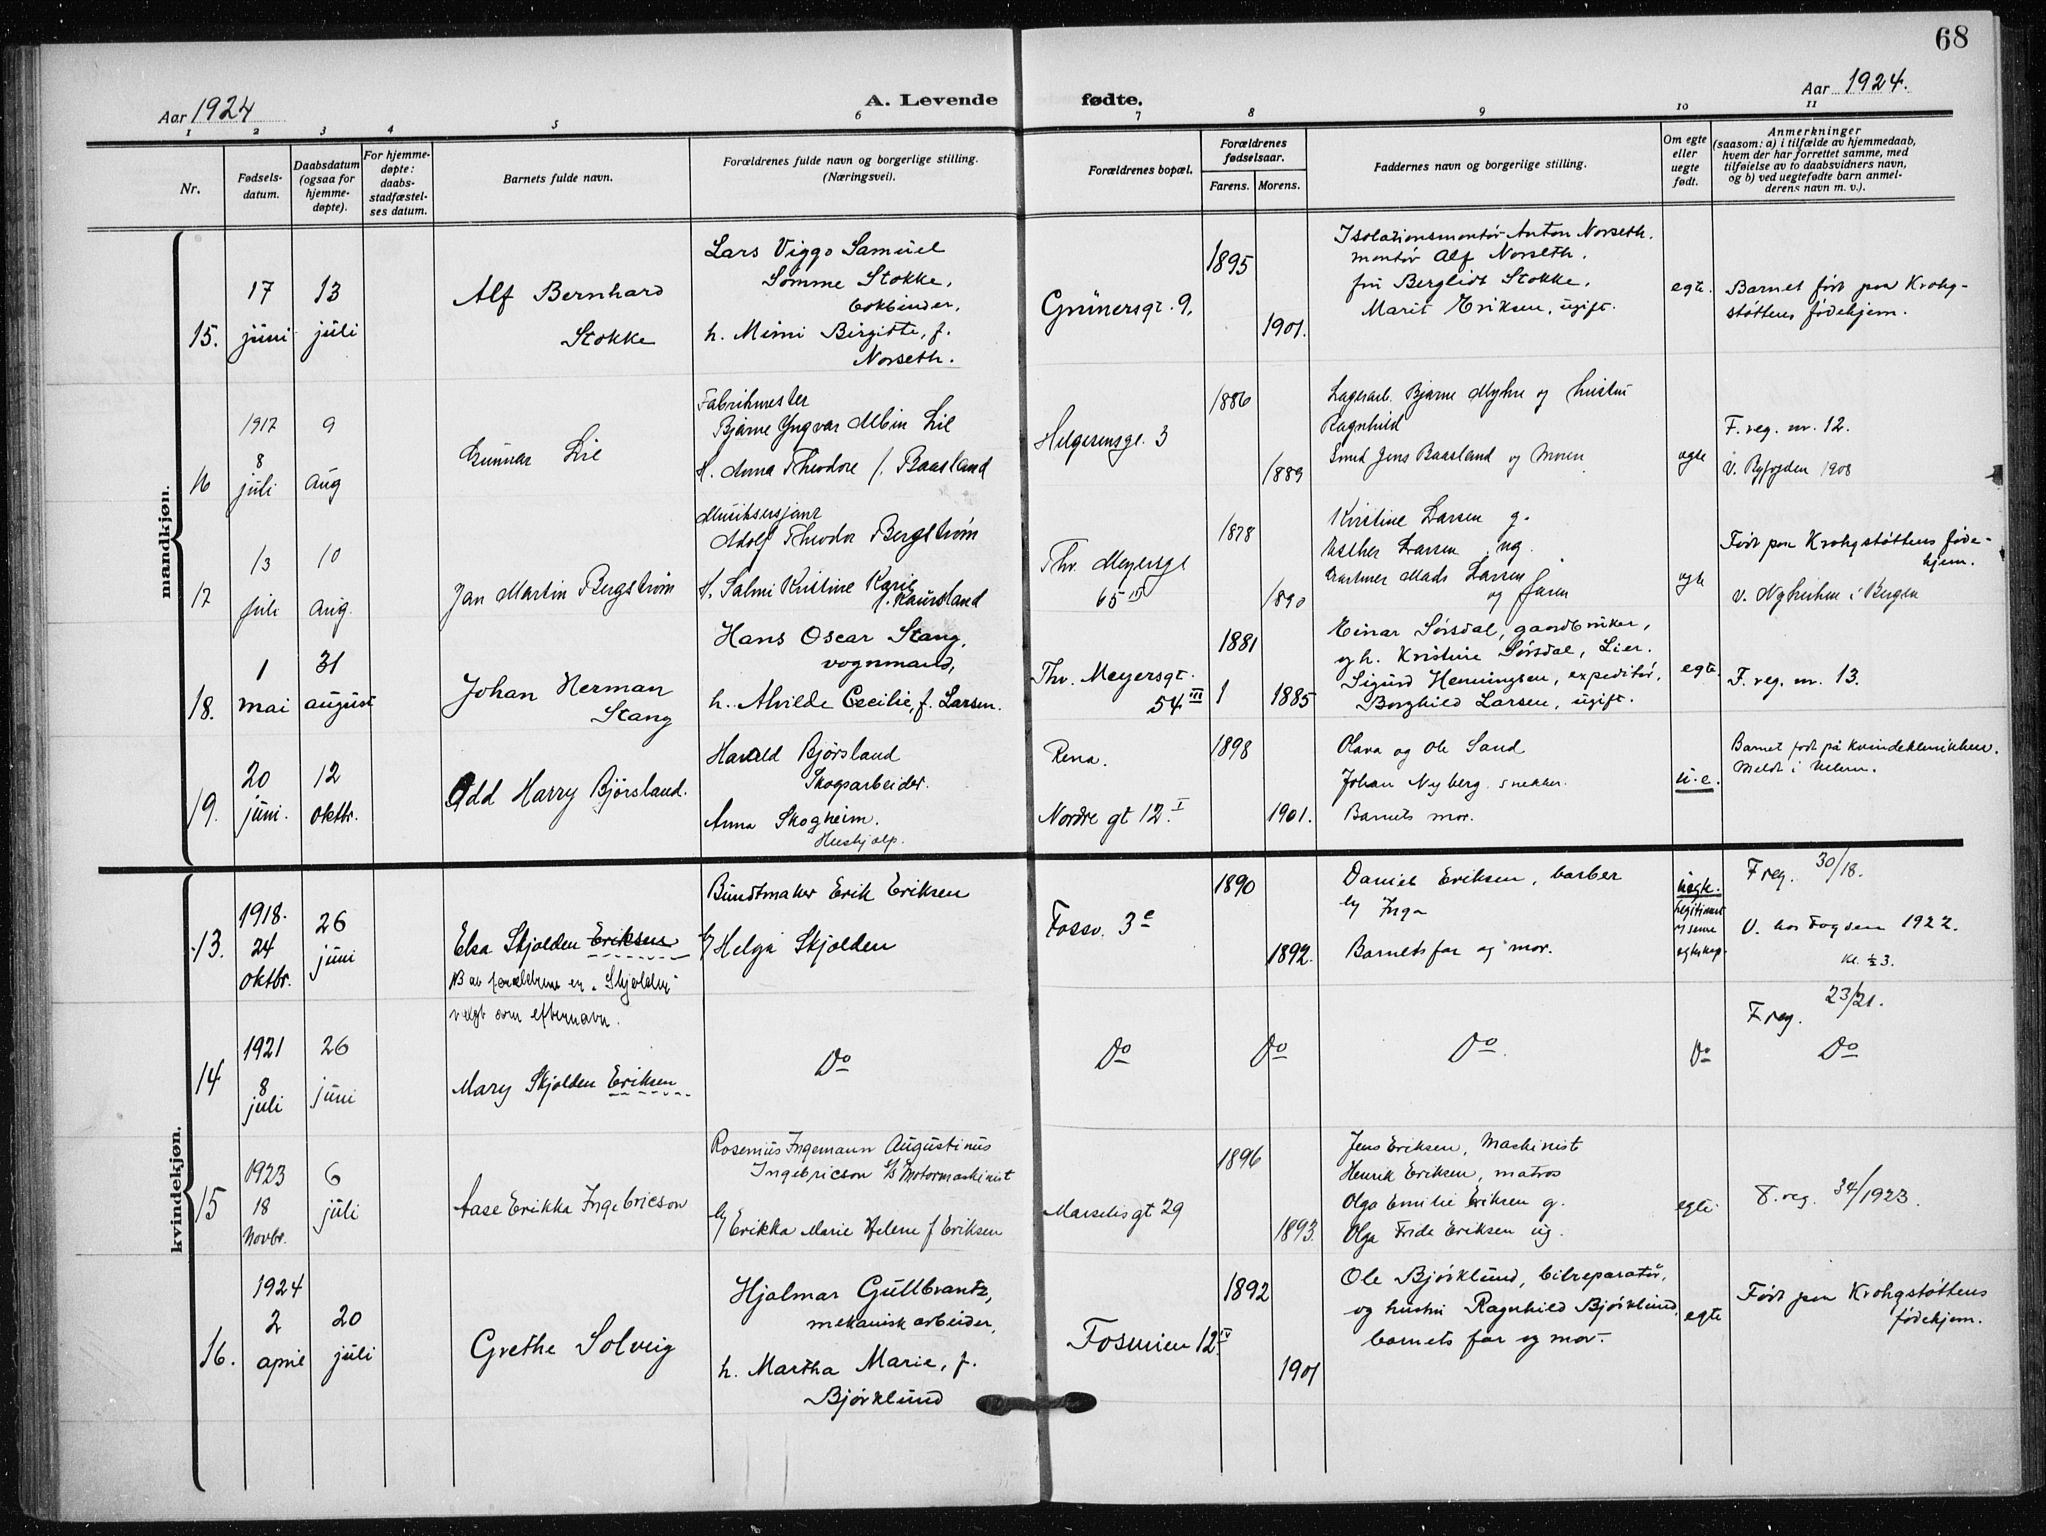 68
Aar 1924
A. Levende fødte.
Aar 1924.
1 2 3 4 5 6 7 8 9 10 11
Nr.
Fødsels-
datum.
Daabsdatum
(ogsaa for
hjemme-
døpte).
For hjemme-
døpte:
daabs-
stadfæstel-
ses datum.
Barnets fulde navn.
Forældrenes fulde navn og borgerlige stilling.
(Næringsvei).
Forældrenes bopæl.
Forældrenes
fødselsaar.
Farens. Morens.
Faddernes navn og borgerlige stilling.
Om egte
eller
uegte
født.
Anmerkninger
(saasom: a) i tilfælde av hjemmedaab,
hvem der har forrettet samme, med
tilføielse av to daabsvidners navn,
og b) ved uegtefødte barn anmel-
derens navn m. v.).
mandkjøn.
15.
17
juni
13
juli
Alf Bernhard
Stokke
Lars Viggo Samuel
Somme Stokke,
bokbinder,
h. Mimi Birgitte, f.
Norseth.
Grünersgt. 9.
1895
1901.
Isolationsmontør Anton Norseth.
montør Alf Norseth.
fru Berglidt Stokke,
Marit Eriksen, ugift.
egte.
Barnet født paa Krohg-
støttens fødehjem.
16
1917
8
juli
9
aug
Gunnar Lie
Fabrikmester
Bjarne Yngvar Albin Lie
H. Anna Theodore f. Baasland
Helgesensgt. 3
1886
1889
Lagerarb. Bjarne Myhre og hustru
Ragnhild
Smed Jens Baasland og Moren
egte
F. reg. nr. 12.
V. Byfogden 1908
17
13
juli
10
aug.
Jan Martin Bergstrøm
Musiksersjant
Adolf Theodor Bergstrøm
H. Salmi Kristine Karie
f. Kaursland
Thv. Meyersgt
65 II
1878
1890
Kristine Larsen g.
Esther Larsen ug.
Gartner Mads Larsen
og faren
egte
Født paa Krohgstøttens føde-
hjem.
v. Nykirken i Bergen
18.
1
mai
31
august
Johan Herman
Stang
Hans Oscar Stang,
vognmand,
h. Alvilde Cecilie, f. Larsen.
Thv. Meyersgt.
54 III
1881
1885
Einar Sørsdal, gaardbruker,
og h. Kristine Sørsdal, Lier.
Sigurd Henningsen, expeditør,
Borghild Larsen, ugift.
egte.
F. reg. nr. 13.
19.
20
juni.
12
oktbr.
Odd Harry Bjørsland.
Harald Bjørsland
Skogsarbeider.
Anna Skogheim.
Hushjælp.
Rena.
Nordre gt 12. I
1898
1901.
Olava og Ole Sand
Johan Nyberg. snekker.
Barnets mor.
u.e.
Barnet født på Kvindeklinikken.
Meldt i
kvindekjøn.
13.
1918.
24
oktbr.
26
juni
Elsa Skjolden Eriksen
NB av forældrene er "Skjolden"
valgt som efternavn.
Buntmaker Erik Eriksen
og Helga Skjolden
Fossv. 3 c
1890
1892.
Daniel Eriksen, barber
og Inga
Barnets far og mor.
uegte.
Legitimert
v. senere
egteskap.
F reg. 30/18.
V. hos Fogden 1922.
Kl. ½ 3.
14
1921
8
juli
26
juni
Mary Skjolden Eriksen
Do
Do
Do
Do
Do
F reg. 23/21.
Do
15
1923
18
Novbr.
6
juli
Aase Erikka Ingebricson
Rosenius Ingemann Augustinus
Ingebricson Motormaskinist
og Erikka Marie Helene f Eriksen
Marselisgt 29
1896
1893.
Jens Eriksen, Maskinist
Henrik Eriksen, matros
Olga Emilie Eriksen g.
Olga Fride Eriksen ug.
egte.
F. reg. 34/1923.
16.
1924
2
april
20
juli
Grethe Solveig
Hjalmar Gullbrantz,
mekanisk arbeider,
h. Martha Marie, f.
Bjørklund
Fosveien 12 IV
1892
1901
Ole Bjørklund, bilreparatør,
og hustru Ragnhild Bjørklund,
barnets far og mor.
egte
Født paa Krohgstøttens
fødehjem.